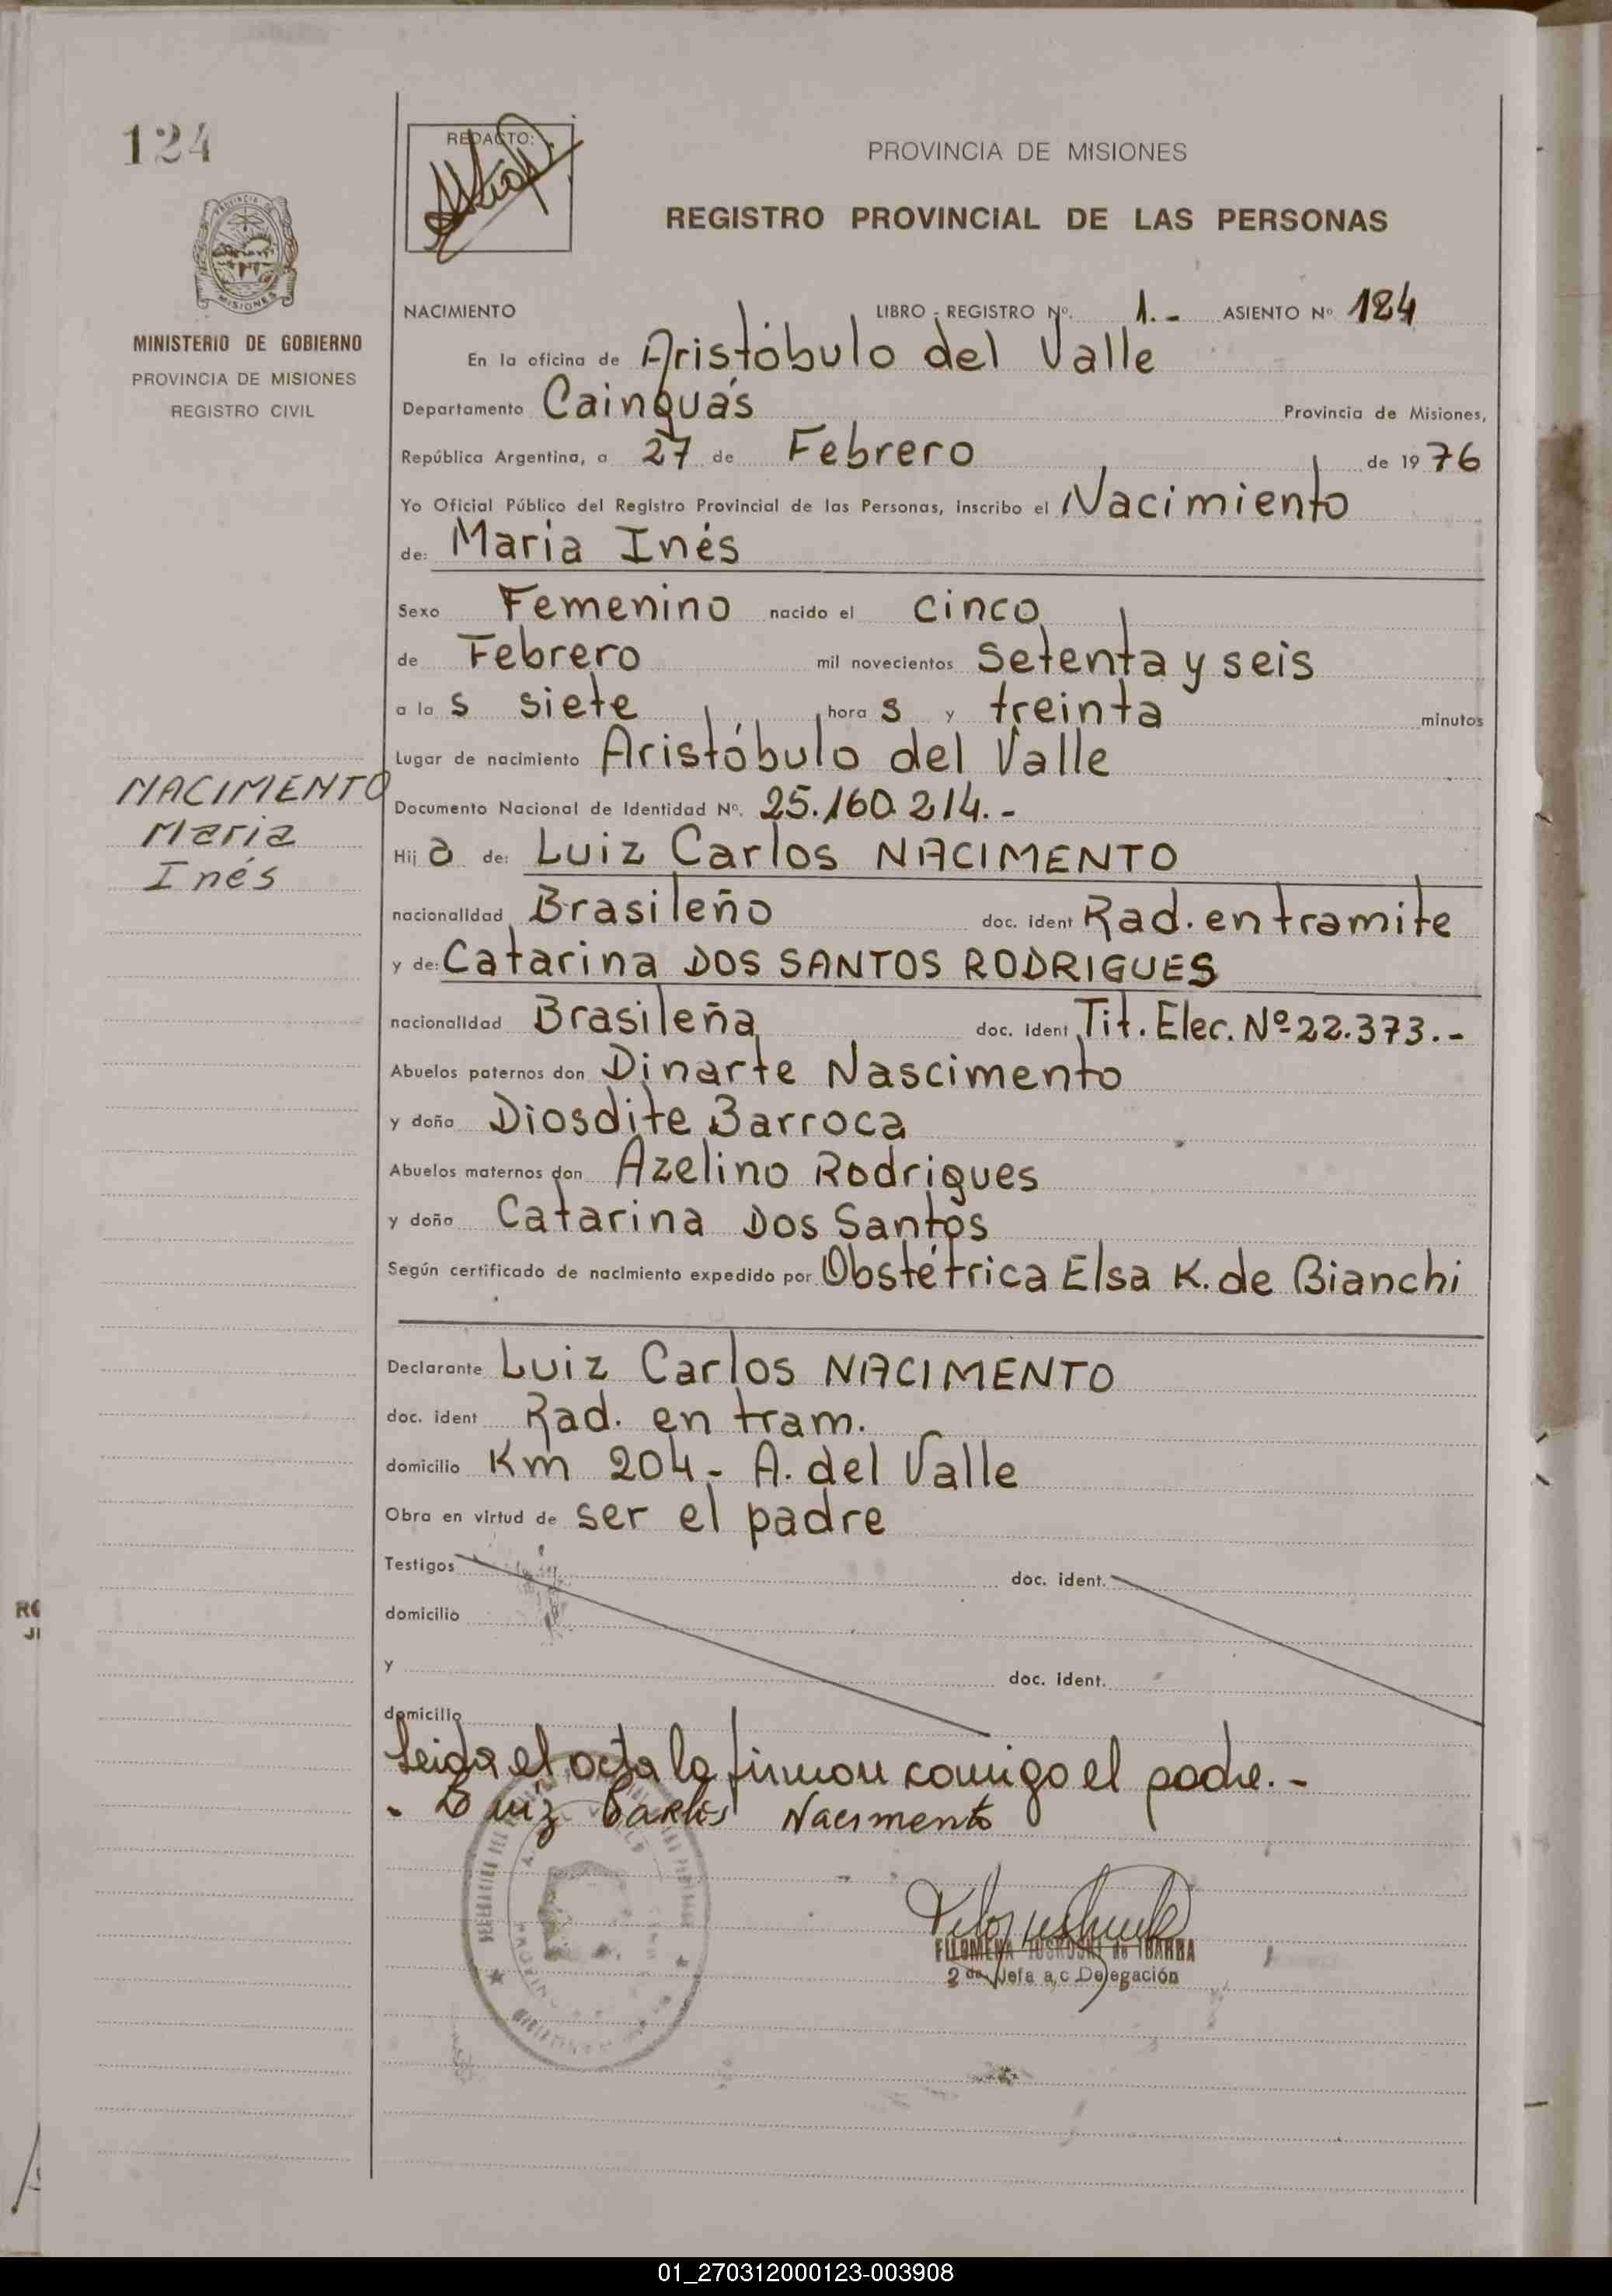 124
REDACTO:
PROVINCIA DE MISIONES
REGISTRO PROVINCIAL DE LAS PERSONAS
MISIONES
MINISTERIO DE GOBIERNO
PROVINCIA DE MISIONES
REGISTRO CIVIL
NACIMIENTO LIBRO - REGISTRO Nº. 1.- ASIENTO Nº 124
En la oficina de Aristóbulo del Valle
Departamento Cainguás Provincia de Misiones,
República Argentina, a 27 de Febrero de 1976
Yo Oficial Público del Registro Provincial de las Personas, inscribo el Nacimiento
de: Maria Inés
Sexo Femenino nacido el cinco
de Febrero mil novecientos setenta y seis
a las siete horas y treinta minutos
Lugar de nacimiento Aristóbulo del Valle
NACIMENTO
Maria
Inés
Documento Nacional de Identidad Nº. 25.160.214.-
Hija de: Luiz Carlos NACIMENTO
nacionalidad Brasileño doc. ident Rad. en tramite
y de: Catarina DOS SANTOS RODRIGUES
nacionalidad Brasileña doc. ident Tit. Elec. Nº 22.373.-
Abuelos paternos don Dinarte Nascimento
y doña Diosdite Barroca
Abuelos maternos don Azelino Rodrigues
y doña Catarina Dos Santos
Según certificado de nacimiento expedido por Obstétrica Elsa K. de Bianchi
Declarante Luiz Carlos NACIMENTO
doc. ident Rad. en tram.
domicilio Km 204 - A. del Valle
Obra en virtud de ser el padre
Testigos doc. ident.
domicilio
y doc. ident.
domicilio
Leida el acta la firman comigo el padre.-
Luiz Carlos Nacimento
FILOMENA de IBARRA
2da Jefa a/c Delegación
01_270312000123-003908